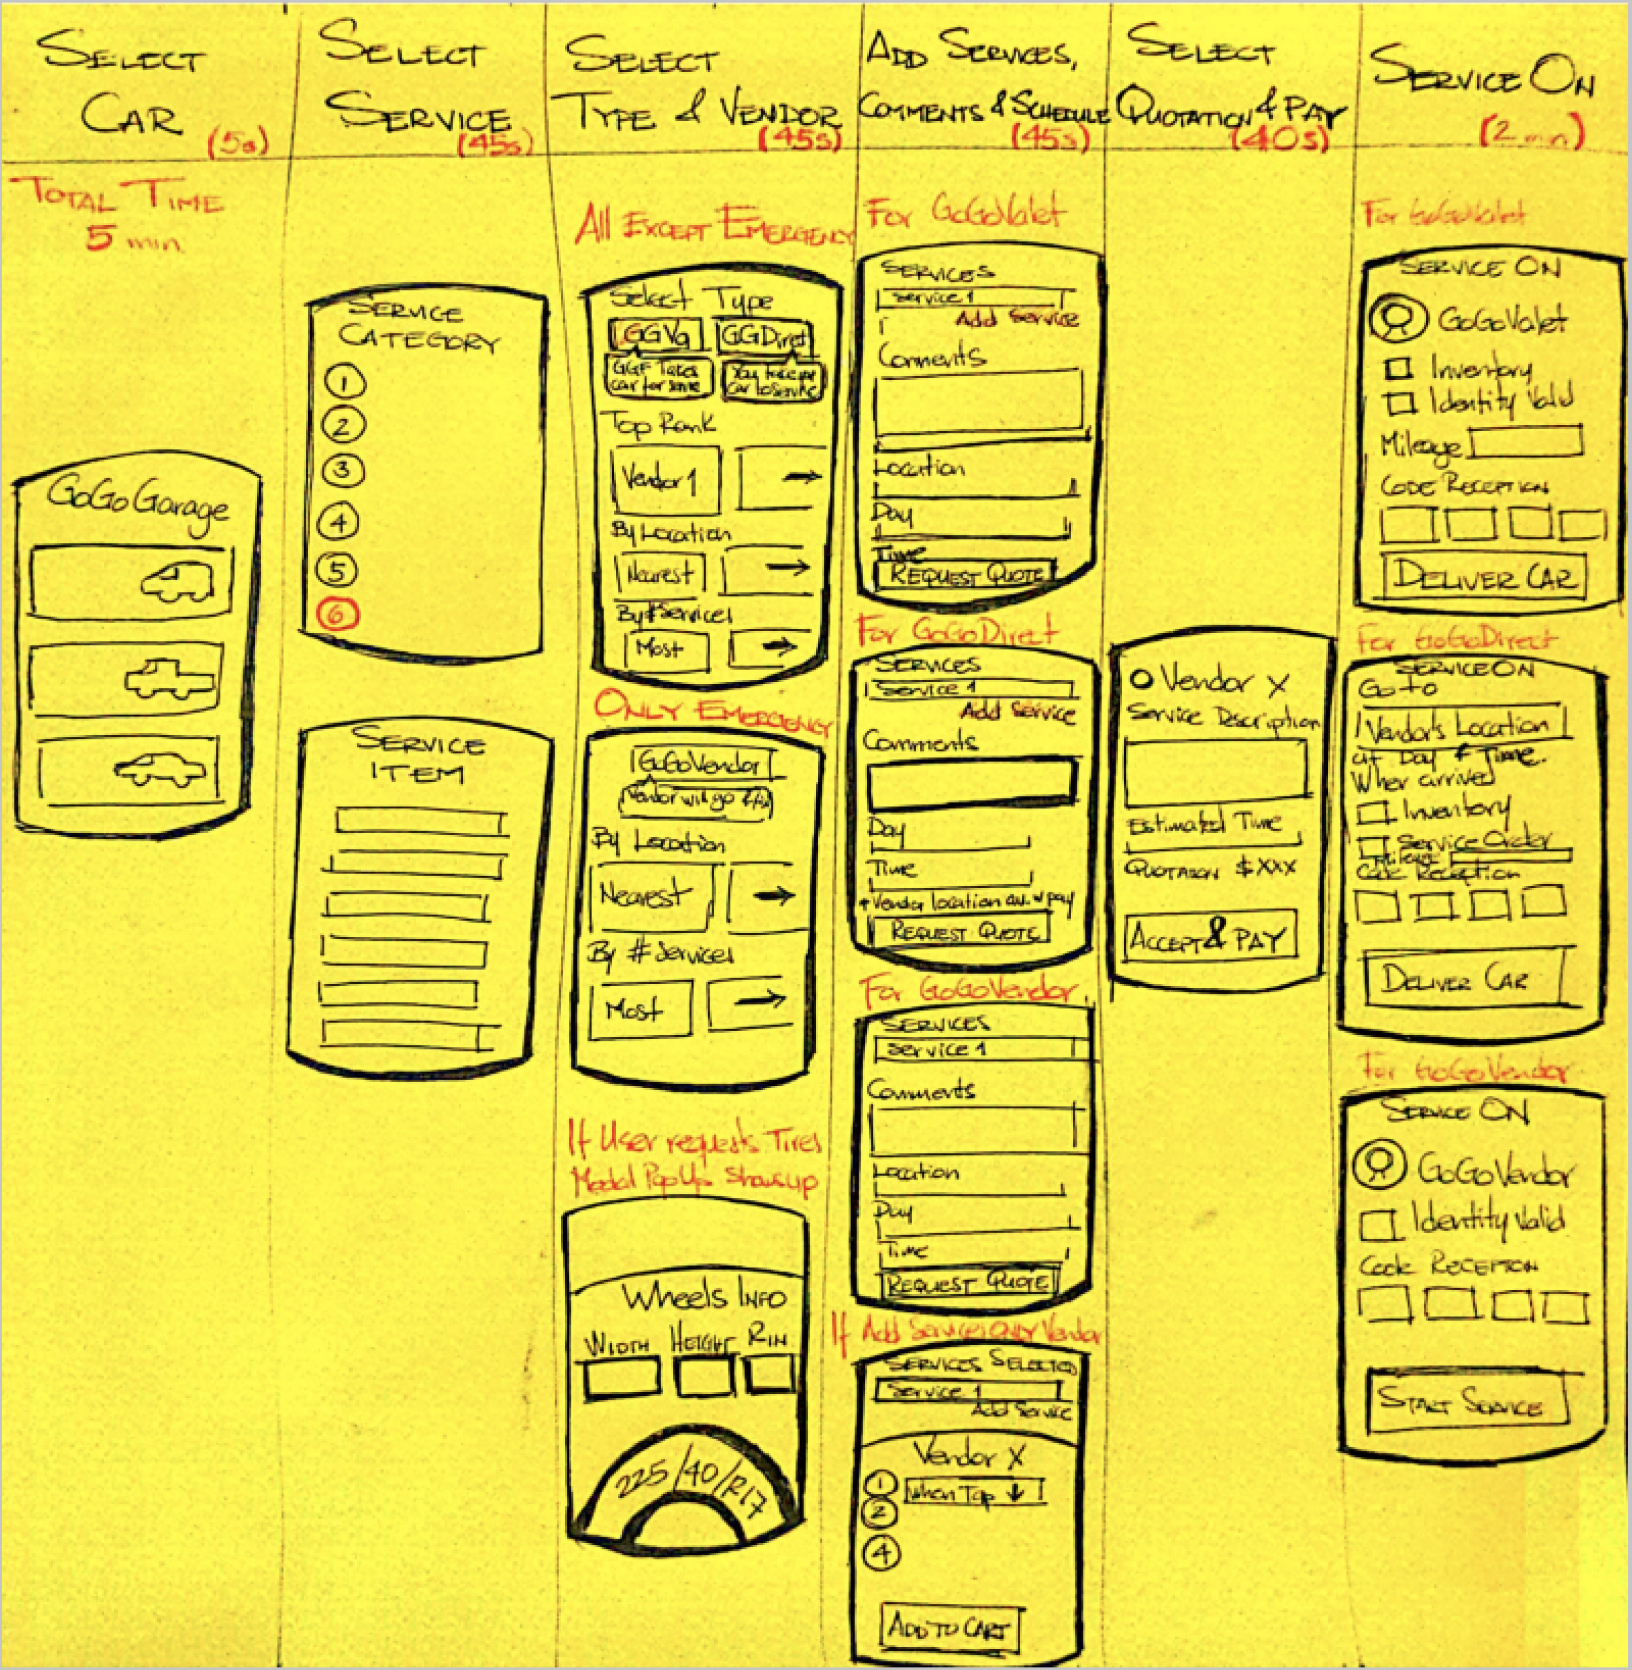 SELECT
CAR
(5s)
SELECT
SERVICE
(45s)
SELECT
TYPE & VENDOR
(45s)
ADD SERVICES,
COMMENTS & SCHEDULE
(45s)
SELECT
QUOTATION & PAY
(40s)
SERVICE ON
(2 min)
TOTAL TIME
5 min.
GoGoGarage
SERVICE
CATEGORY
1
2
3
4
5
6
SERVICE
ITEM
All EXCEPT EMERGENCY
Select Type
GGVa
GGDirect
GGF Takes
car for
You take
car to service
Top Rank
Vendor 1
By Location
Nearest
By # Services
Most
ONLY EMERGENCY
GoGoVendor
Vendor will go
By Location
Nearest
By # Services
Most
If User requests Tires
Modal PopUp Shows up
Wheels INFO
WIDTH HEIGHT RIN
225/40/R17
For GoGoValet
SERVICES
Service 1
Add Service
Comments
Location
Day
Time
REQUEST QUOTE
For GoGoDirect
SERVICES
Service 1
Add Service
Comments
Day
Time
Vendor location av. w pay
REQUEST QUOTE
For GoGoVendor
SERVICES
Service 1
Comments
Location
Day
Time
REQUEST QUOTE
If Add Services ONLY Vendor
SERVICES SELECTED
Service 1
Add Service
Vendor X
1
When Tap ↓
2
4
ADD TO CART
Vendor X
Service Description
Estimated Time
QUOTASON $XXX
ACCEPT & PAY
For GoGoValet
SERVICE ON
GoGoValet
Inventory
Identity Valid
Mileage
CODE RECEPTION
DELIVER CAR
For GoGoDirect
SERVICE ON
Go to
Vendor's Location
at Day & Time.
When arrived
Inventory
Service Order
Mileage
Code Reception
DELIVER CAR
For GoGoVendor
SERVICE ON
GoGoVendor
Identity Valid
Code RECEPTION
START SERVICE